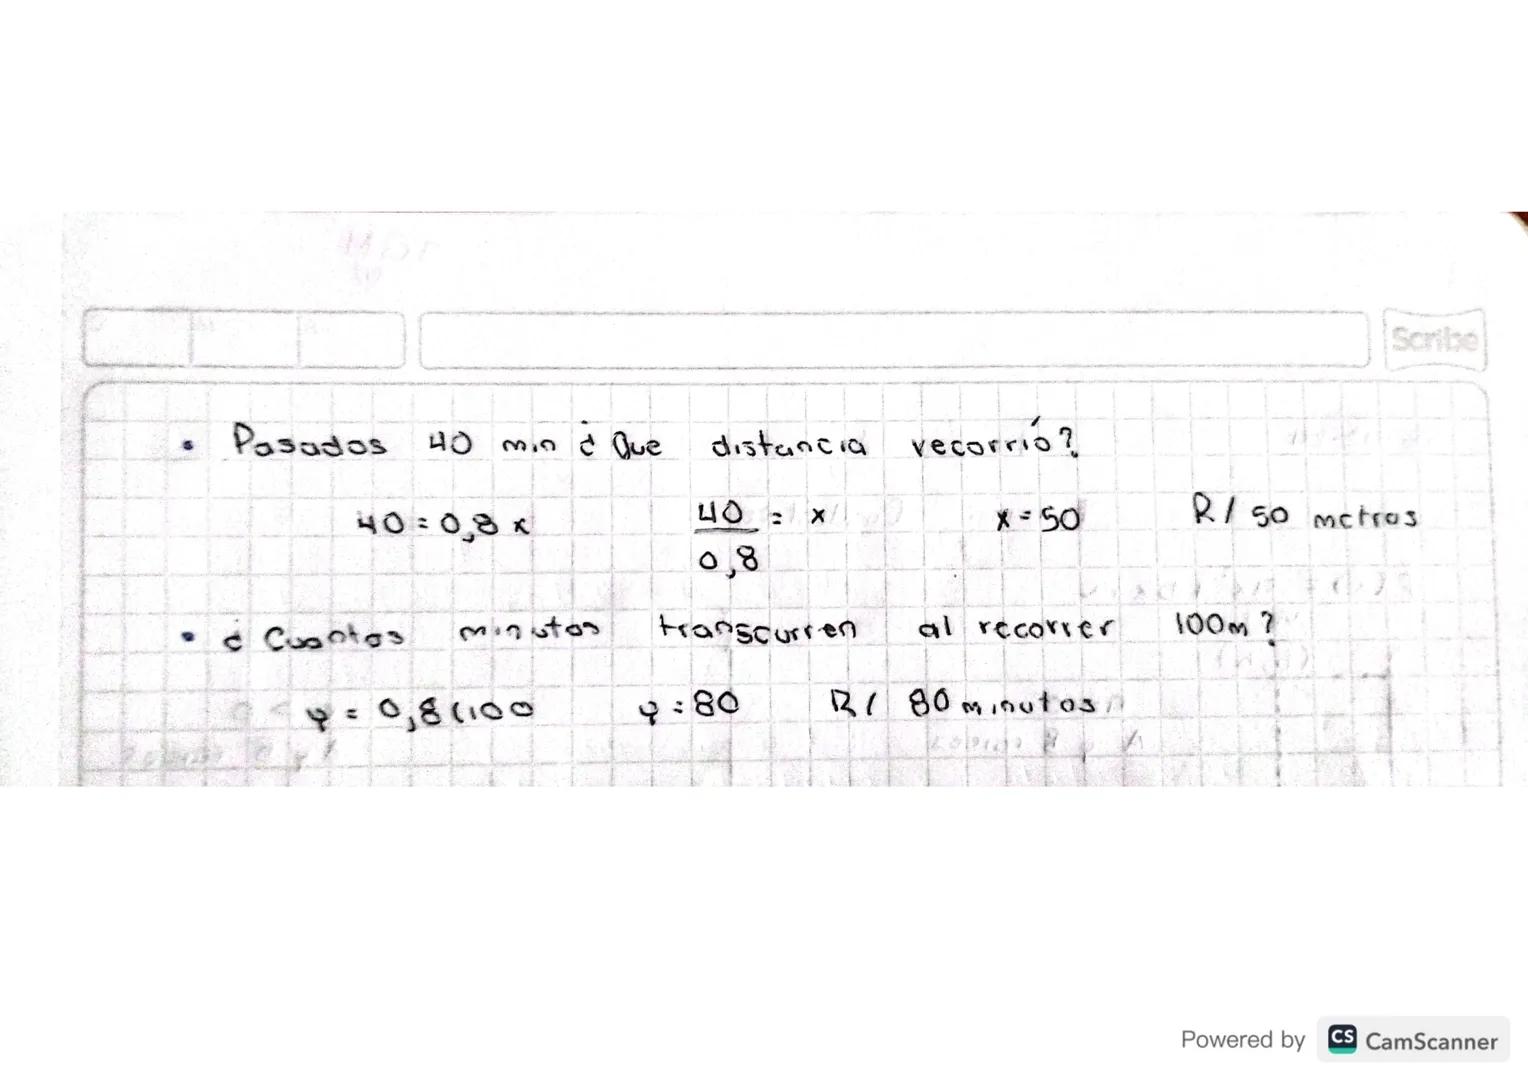 Scribe
• Pasados 40 min ¿ Que distancia recorrió?
40 = 0,8 x 40/0,8 = x x = 50 R/ 50 metros
• ¿ Cuantos minutos transcurren al recorrer 100m ?
y = 0,8(100 y = 80 R/ 80 minutos
Powered by CS CamScanner